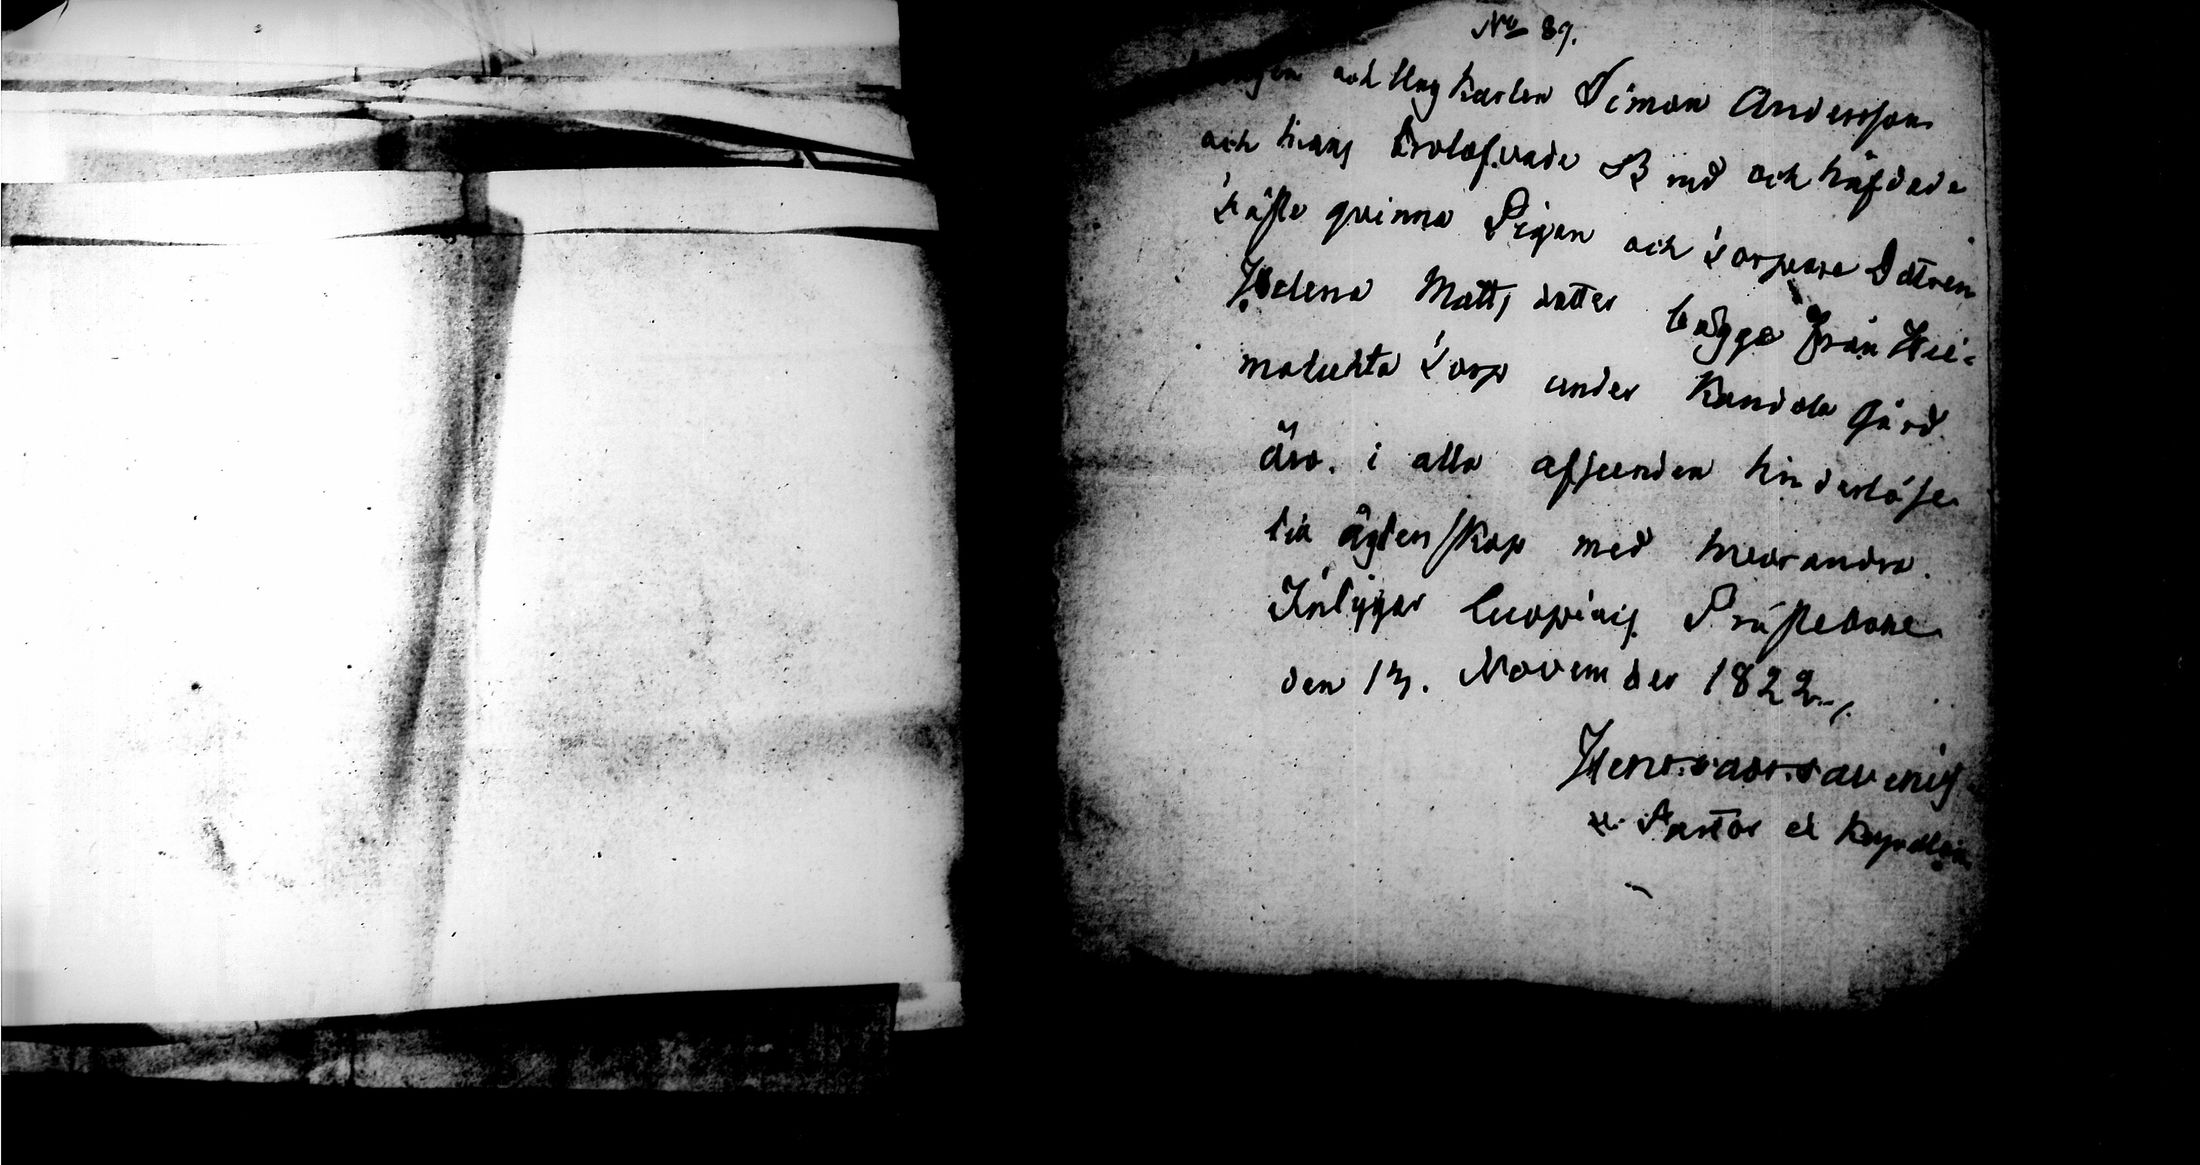 No 89.
och Ung Karlen Simon Andersson
och hans Trolofvade B rud och häfdade
fäste qvinna Pigan och Torpare Dötren
Helena Matts dotter bägge från Hei-
moluhta Torp under Kandola Gård
äro i alla afseenden hinderlöse
till ägtenskap med hvarandra.
Intygar Cuopiais Prästebohl
den 13. November 1822
Pastor et Kapellan